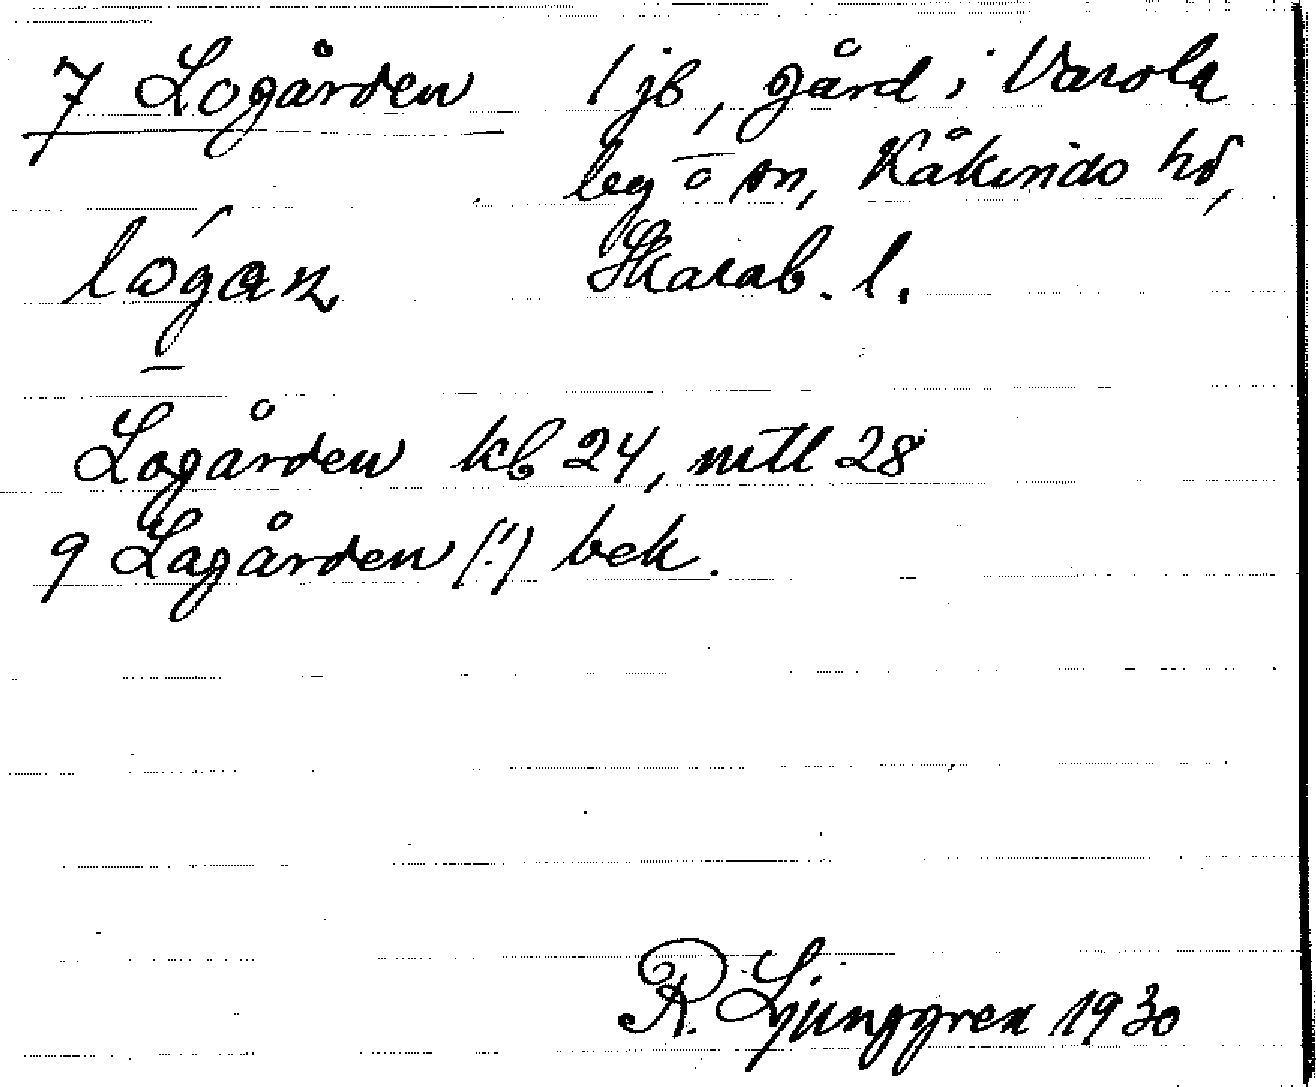 7 Logården 1 jb, gård i Varola
by o sn, Kåkinds hd,
lógan Skarab. l.
Logården kb 24, mtl 28
9 Lagården (!) bek.
R. Ljunggren 1930